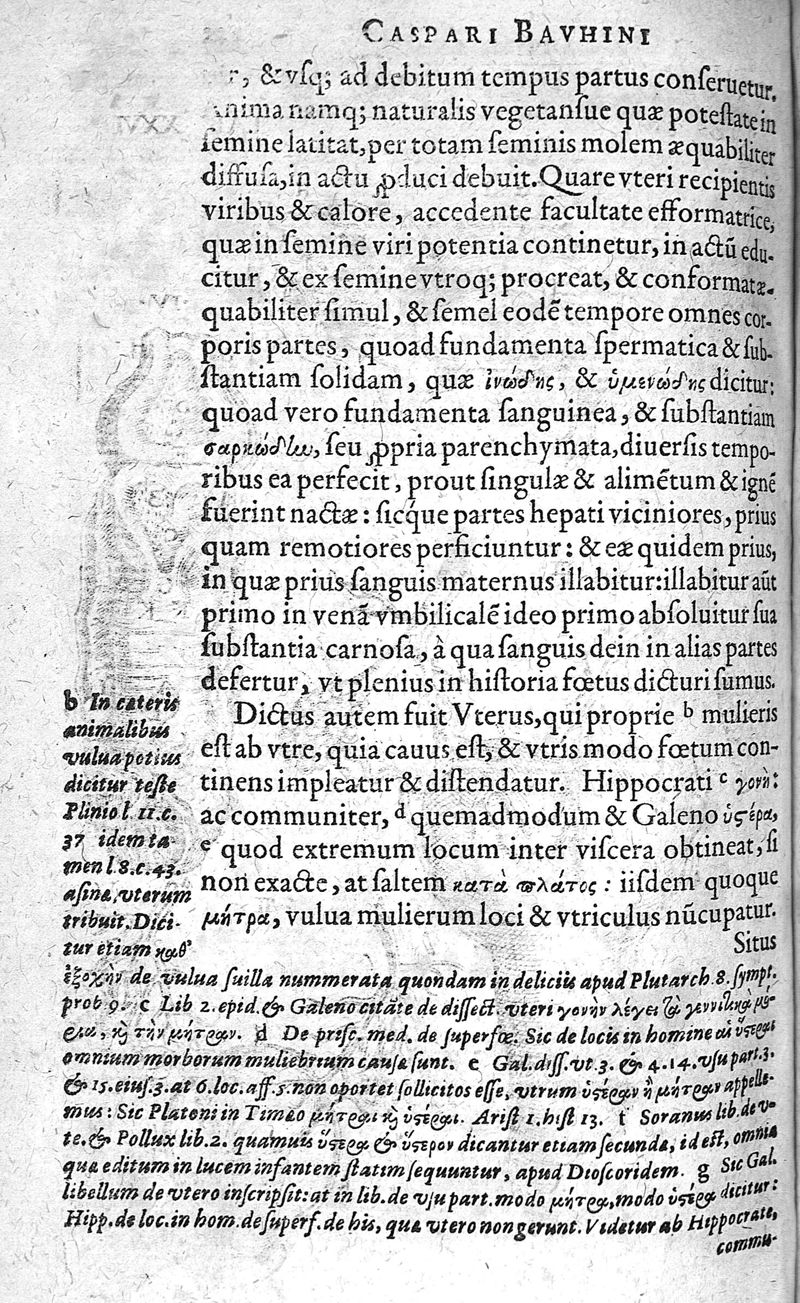 CASPARI BAVHINI
r, & vſq; ad debitum tempus partus conſeruetur.
Anima namq; naturalis vegetanſue quæ poteſtate in
ſemine latitat, per totam ſeminis molem æquabiliter
diffuſa, in actu ꝓduci debuit. Quare vteri recipientis
viribus & calore, accedente facultate efformatrice,
quæ in ſemine viri potentia continetur, in actũ edu-
citur, & ex ſemine vtroq; procreat, & conformat æ-
quabiliter ſimul, & ſemel eodẽ tempore omnes cor-
poris partes, quoad fundamenta ſpermatica & ſub-
ſtantiam ſolidam, quæ ἰνώδης, & ὑμενώδης dicitur:
quoad vero fundamenta ſanguinea, & ſubſtantiam
σαρκώδην, ſeu ꝓpria parenchymata, diuerſis tempo-
ribus ea perfecit, prout ſingulæ & alimẽtum & ignẽ
fuerint nactæ: ſicq́ue partes hepati viciniores, prius
quam remotiores perficiuntur: & eæ quidem prius,
in quæ prius ſanguis maternus illabitur: illabitur aũt
primo in venã vmbilicalẽ ideo primo abſoluitur ſua
ſubſtantia carnoſa, à qua ſanguis dein in alias partes
defertur, vt plenius in hiſtoria fœtus dicturi ſumus.
Dictus autem fuit Vterus, qui proprie b mulieris
eſt ab vtre, quia cauus eſt, & vtris modo fœtum con-
tinens impleatur & diſtendatur. Hippocrati c γονὴ:
ac communiter, d quemadmodum & Galeno ὑϛέρα,
e quod extremum locum inter viſcera obtineat, ſi
non exacte, at ſaltem κατὰ πλάτος: iiſdem quoque
μήτρα, vulua mulierum loci & vtriculus nũcupatur.
Situs
b In cæteris
animalibus
vulua potius
dicitur teſte
Plinio l. 11. c.
37 idem ta-
men l. 8. c. 43.
aſinæ, vterum
tribuit. Dici-
tur etiam καθ'
ἐξοχὴν de vulua ſuilla nummerata quondam in deliciis apud Plutarch. 8. ſympt.
prob 9. c Lib 2. epid. & Galeno citãte de diſſect. vteri γονὴν λέγει τὰ γεννικὰ μό-
ρια, ϗ τὴν μήτραν. d De priſc. med. de ſuperfœ. Sic de locis in homine αἱ ὑϛέραι
omnium morborum muliebrium cauſæ ſunt. e Gal. diſſ. vt. 3. & 4. 14. vſu part. 3.
& 15. eiuſ. 3. at 6. loc. aff. 5. non oportet ſollicitos eſſe, vtrum ὑϛέραν ἢ μήτραν appelle-
mus: Sic Platoni in Timæo μήτραι ϗ ὑϛέραι. Ariſt 1. hiſt 13. f Soranus lib. de v-
te. & Pollux lib. 2. quamuis ὕϛερα & ὕϛερον dicantur etiam ſecundæ, id eſt, omnia
quæ editum in lucem infantem ſtatim ſequuntur, apud Dioſcoridem. g Sic Gal.
libellum de vtero inſcripſit: at in lib. de vſu part. modo μήτρα, modo ὑϛέρα dicitur:
Hipp. de loc. in hom. de ſuperf. de his, quæ vtero non gerunt. Videtur ab Hippocrate,
commu-